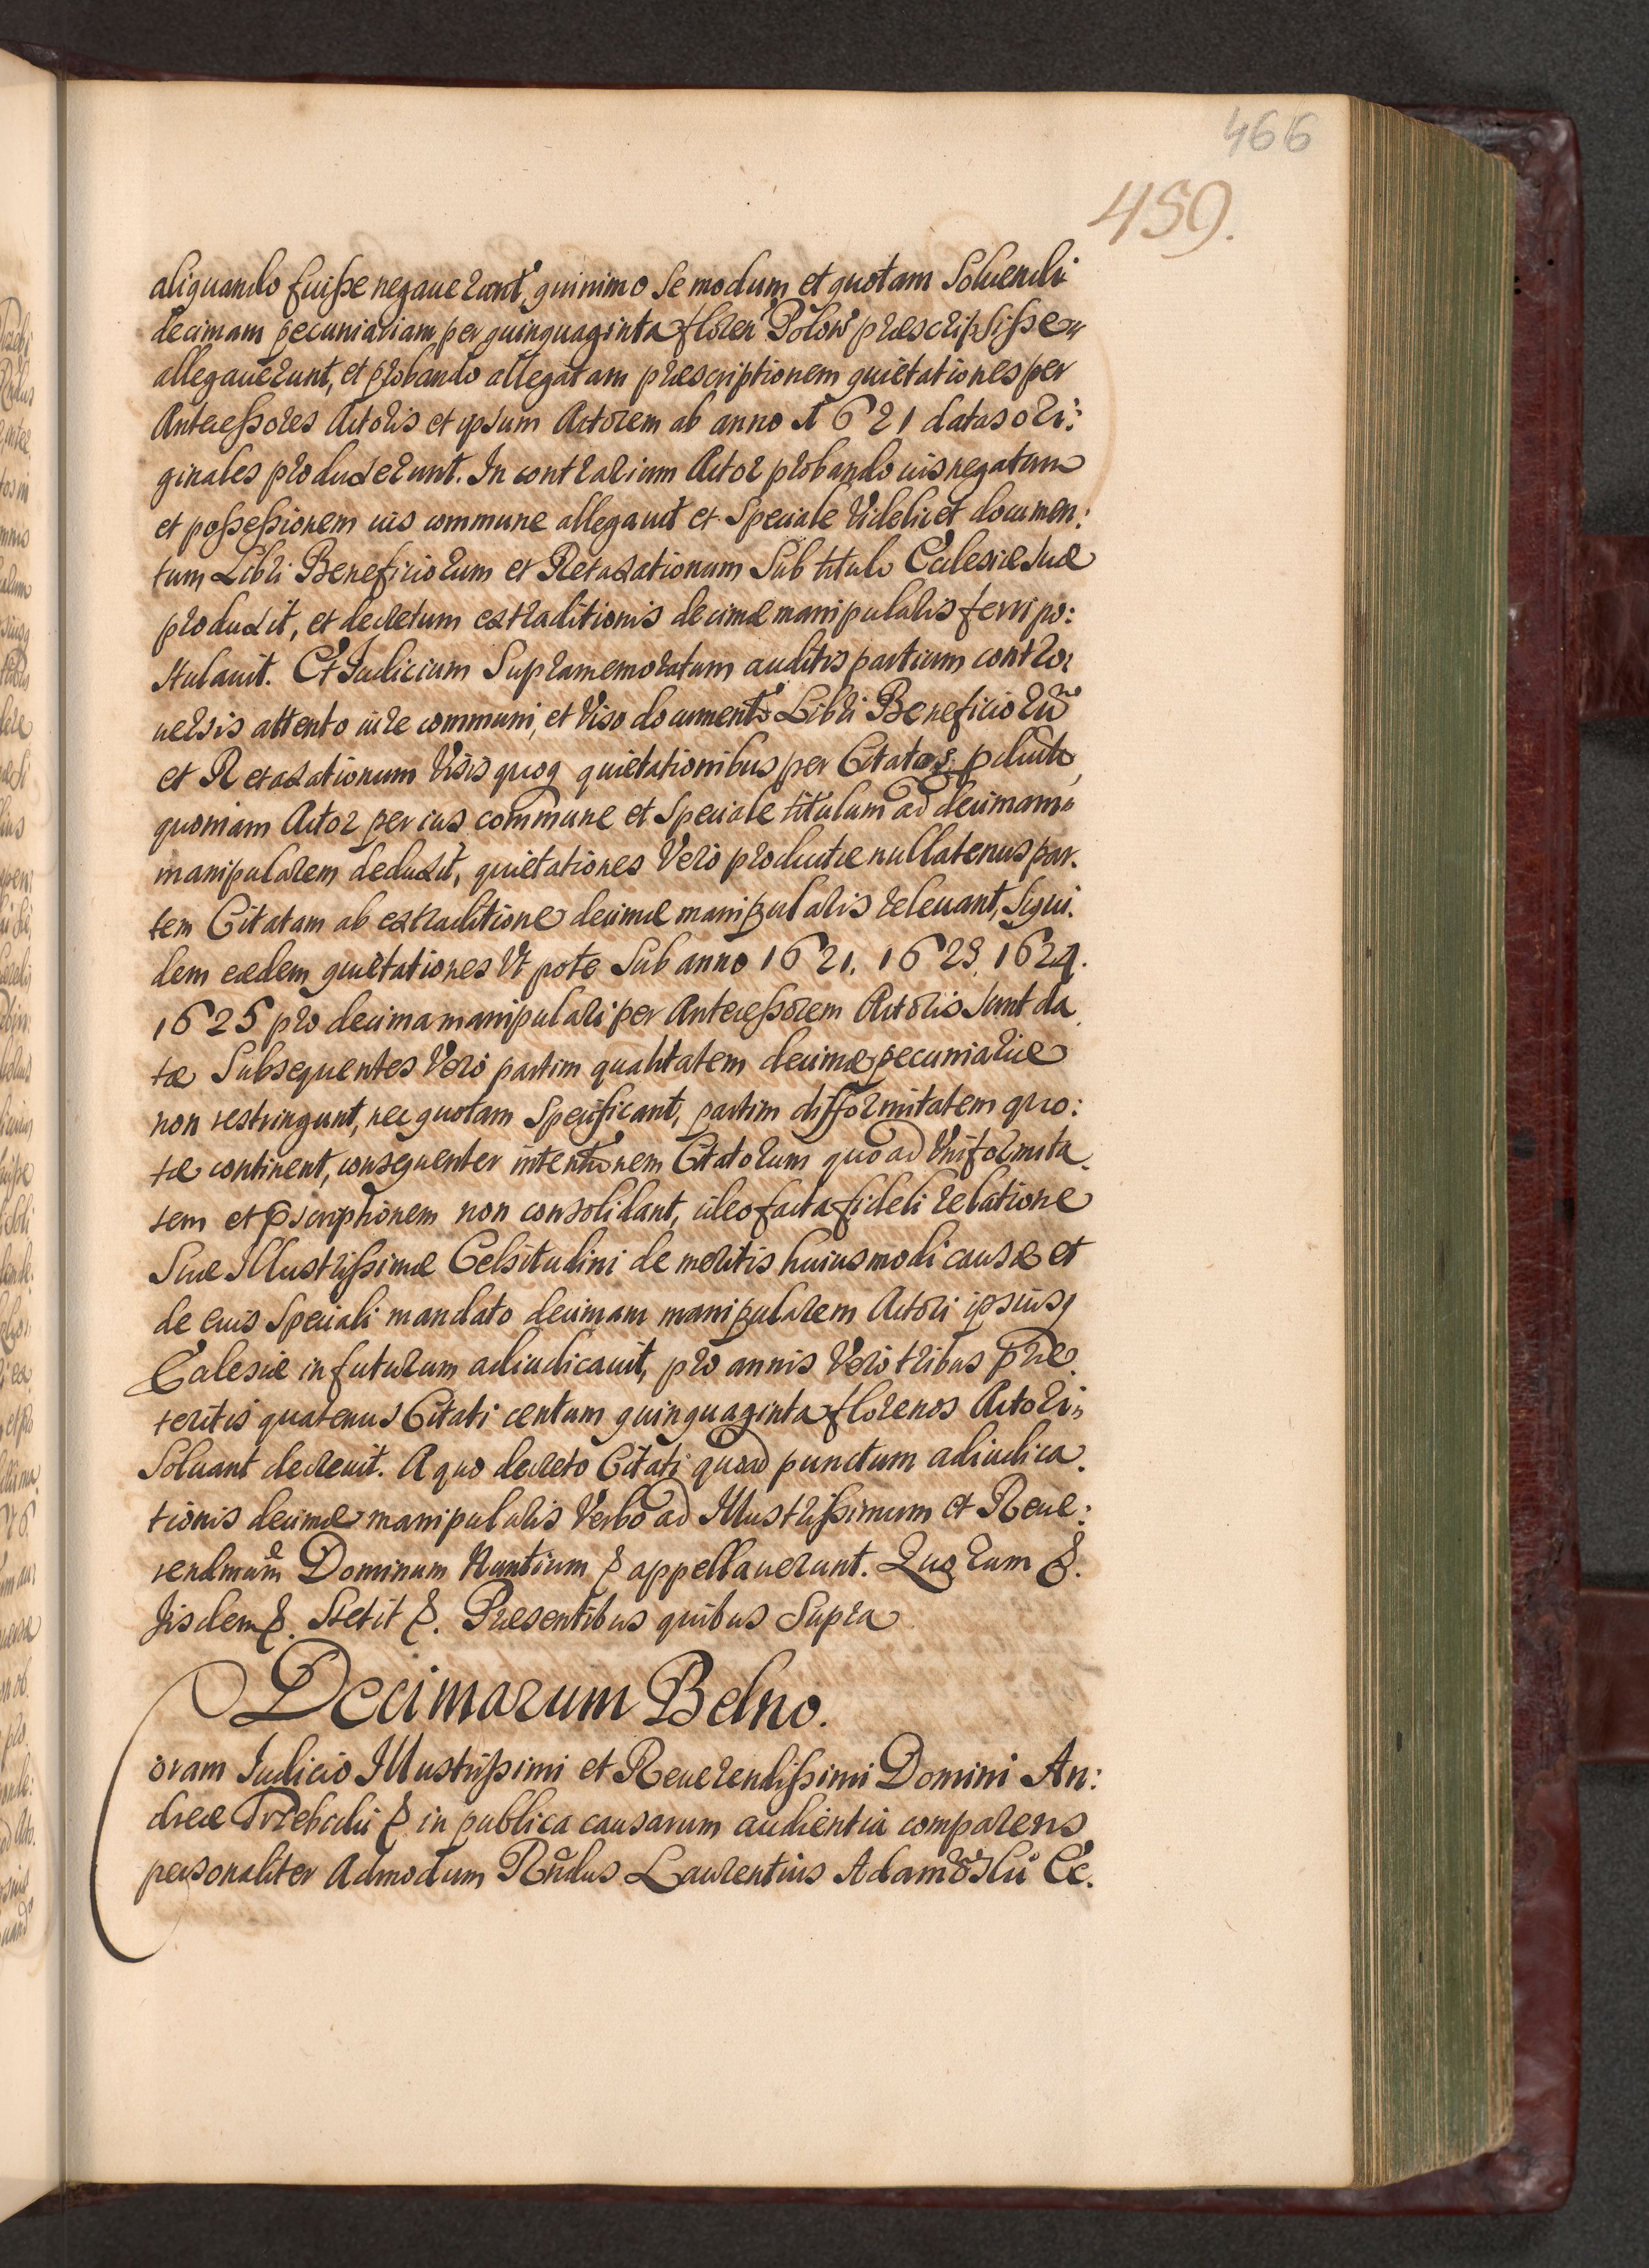 466
459.
aliquando fuisse negauerunt, quinimo se modum et quotam Soluendi
decimam pecuniariam per quinquaginta floren Polon præscripsisse
allegauerunt, et probando allegatam præscriptionem quietationes per
Antecessores Actoris et ipsum Actorem ab anno 1621 datas ori:
ginales produxerunt. In contrarium Actor probando ius negatum
et possessionem ius commune allegauit et Speciale Videlicet documen:
tum Libri Beneficiorum et Retaxationum Sub titulo Ecclesiæ suæ
produxit, et decretum extraditionis decimæ manipularis ferri po:
stulauit. Et Iudicium Supramemoratum auditis partium contro:
uersis attento iure communi, et Viso documento Libri Beneficiorũ
et Retaxationum Visis quoq quietationibus per Citatos
quoniam Actor per ius commune et Speciale titulum ad decimam
manipularem deduxit, quietationes Vero productæ nullatenus par.
tem Citatam ab extraditione decimæ manipularis releuant, Siqui.
dem eædem quietationes Ut pote Sub anno 1621. 1623. 1624.
1625 pro decima manipulari per Antecessorem Actoris Sunt da
tæ Subsequentes Vero partim qualitatem decimæ pecuniariæ
non restringunt, nec quotam Specificant, partim difformitatem quo:
tæ continent, consequenter intentionem Citatorum quoad Vniformita.
tem et pscriptionem non consolidant, ideo facta fideli relatione
Suæ Illustrissimæ Celsitudini de meritis huiusmodi causæ et
de eius Speciali mandato decimam manipularem Actori ipsiusq
Ecclesiæ in futurum adiudicauit, pro annis Vero tribus præ
teritis quatenus Citati centum quinquaginta florenos Actori
Soluant decreuit. A quo decreto Citati quoad punctum adiudica.
tionis decimæ manipularis Verbo ad Illustrissimum et Reue:
rendmum Dominum Nuntium & appellauerunt. Quorum &.
Iisdem &. Stetit &. Præsentibus quibus Supra
Decimarum Belno.
Coram Iudicio Illustrissimi et Reuerendissimi Domini An:
dreæ Trzebicki & in publica causarum audientia comparens
personaliter Admodum Rndus Laurentius Adamoski Ec.